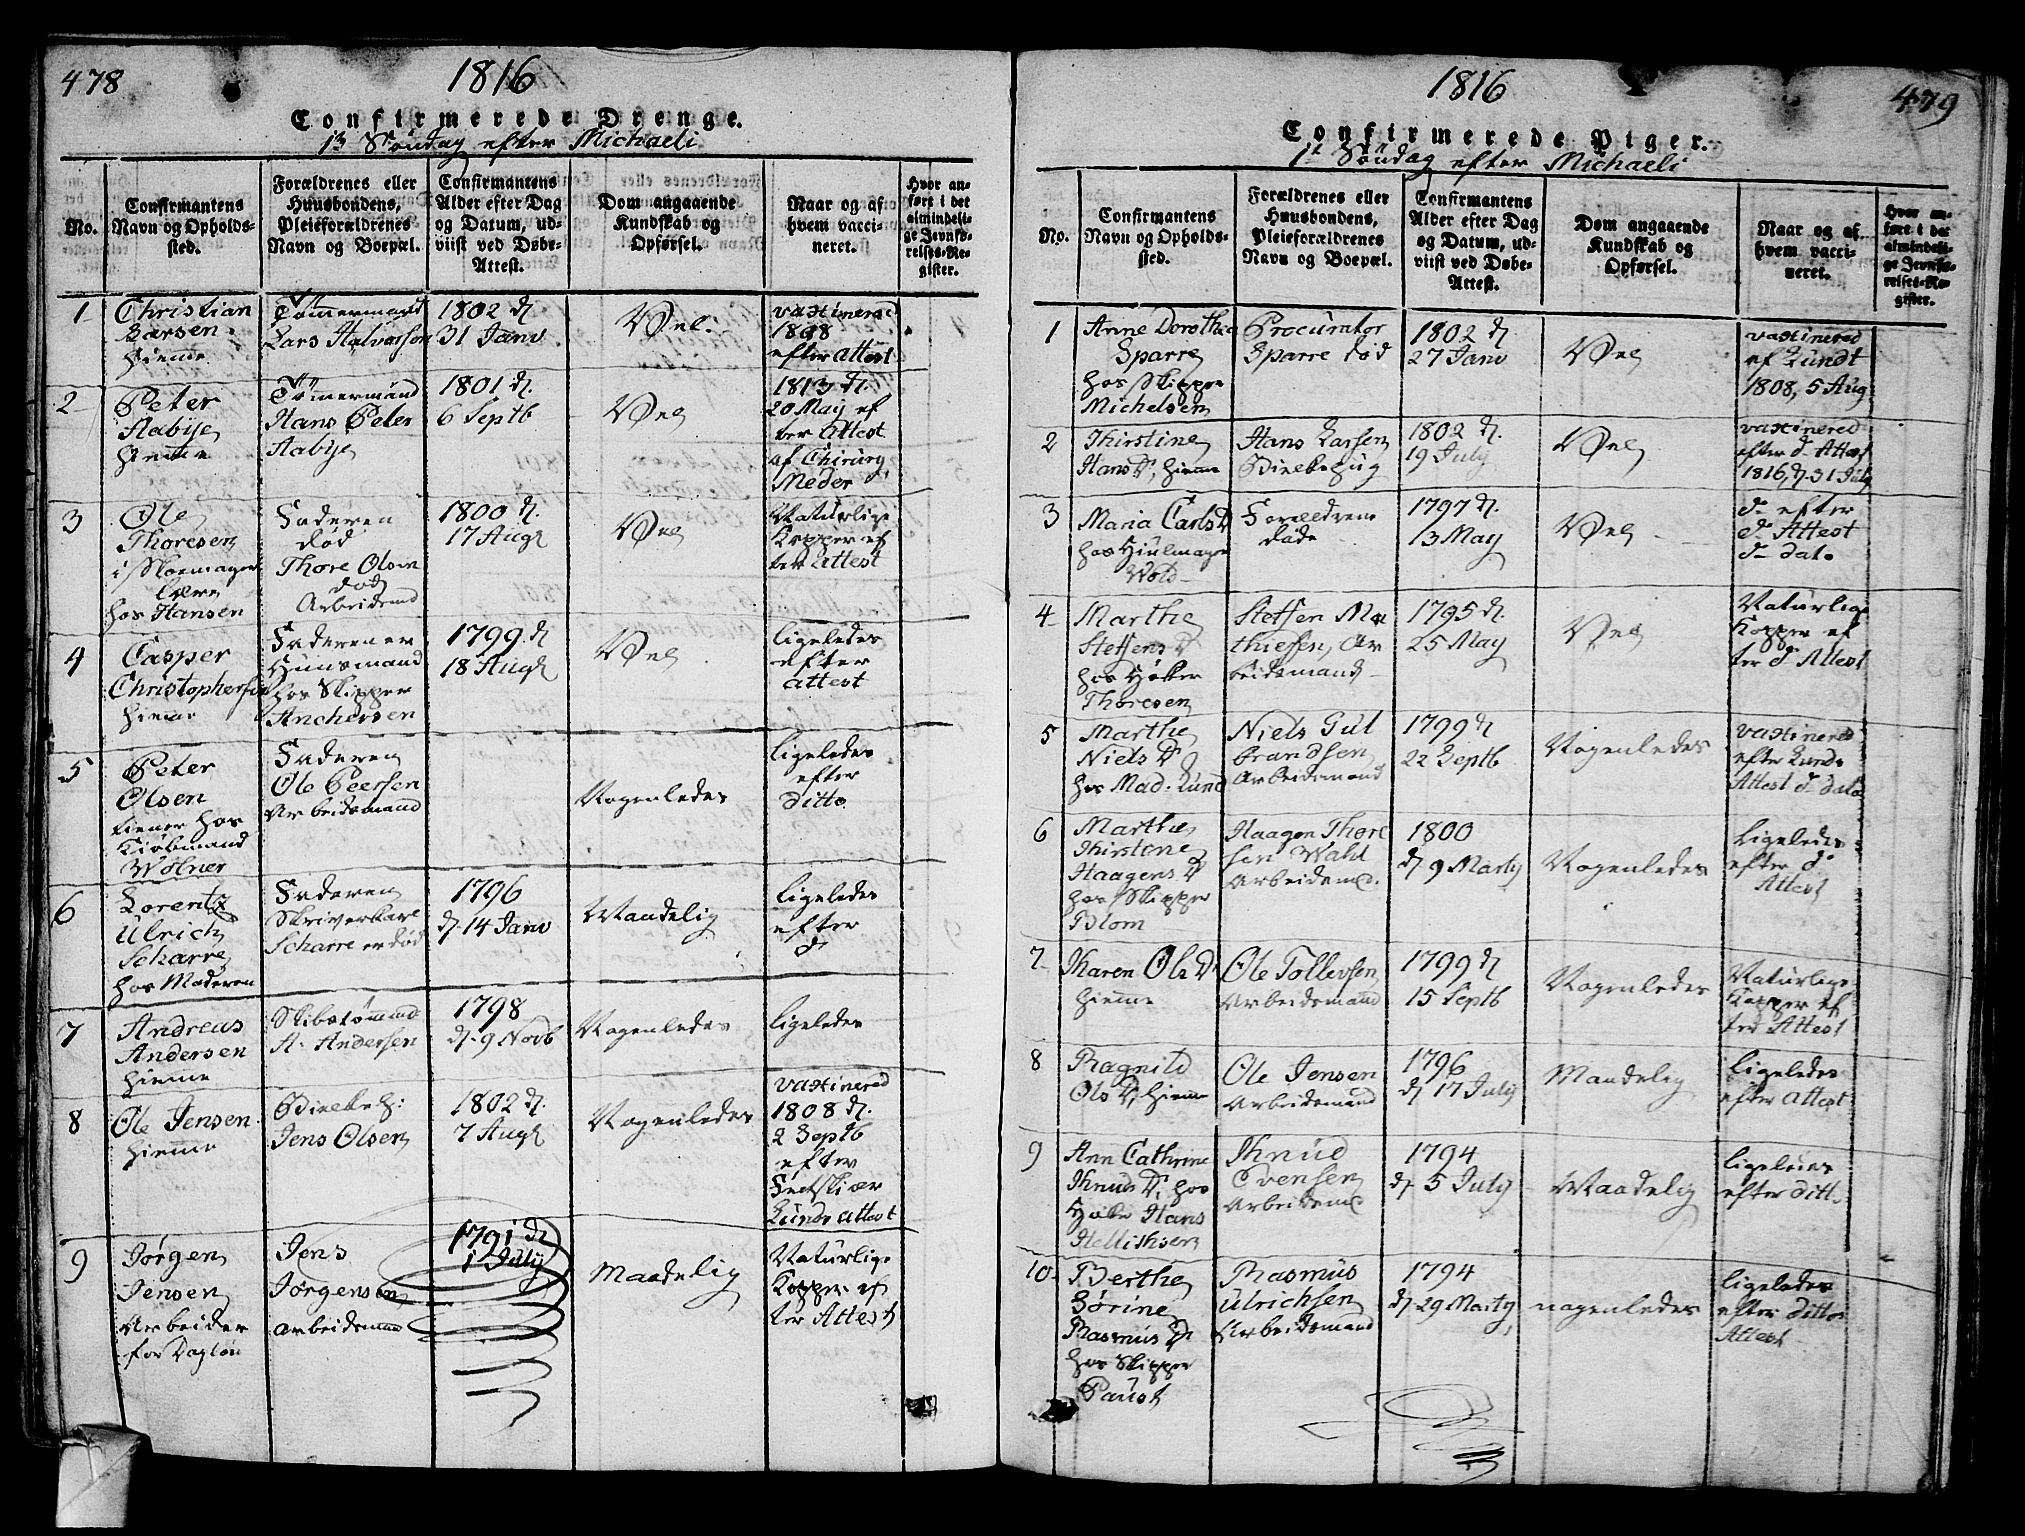 478
1816
Confirmerede Drenge.
13 Søndag efter Michaeli
No.
Confirmantens
Navn og Opholds-
sted.
Forældrenes eller
Huusbondens,
Pleieforældrenes
Navn og Boepæl.
Confirmantens
Alder efter Dag
og Datum, ud-
viist ved Døbe-
Attest.
Dom angaaende
Kundskab og
Opførsel.
Naar og af
hvem vacci-
neret.
Hvor an-
ført i det
almindeli-
ge Jevnfø-
relses-Re-
gister.
1
Christian
Larsen
hiemme
Tømermand
Lars Halvorsen
1802 d.
31 Janv
Vel.
vaxinered
1808
efter Attest
2
Peter
Aabye
hiemme
Tømermand
Hans Peter
Aabye
1801 d.
6 Septb
Vel
1813 d.
20 May ef
ter Attest
af Chirurg
Meder
3
Ole
Thoresen
i Skomager
Lære
hos Hansen
Faderen
død
Thore Olsen
død
Arbeidsmd
1800 d.
17 Augt
Vel
Naturlige
Kopper ef
ter Attest
4
Casper
Christophersen
hiemme
Faderen er
Huusmand
hos Skipper
Anchersen
1799 d
18 Augt
Vel
ligeledes
efter
Attest
5
Peter
Olsen
tiener hos
Kiøbmand
Wølner
Faderen
Ole Peersen
Arbeidsmand
Nogenledes
ligeledes
efter
ditto
6
Lorentz
Ulrich
Scharre
hos Moderen
Faderen
Skriverkarl
Scharre er død
1796
d. 14 Janv
Maadelig
ligeledes
efter
do
7
Andreas
Andersen
hiemme
Skibstømmd
A. Andersen
1798
d. 9 Novb
Nogenledes
ligeledes
8
Ole Jensen
hiemme
Jens Olsen
1802 d.
7 Augt
Nogenledes
vaxinered
1808 d.
2 Septb
efter
Lunds Attest
9
Jørgen
Jensen
Arbeider
for Dagløn
Jens
Jørgensen
arbeidsman
1791 d
1 July
Maadelig
Naturlige
Kopper ef
ter Attest
1816
479
Confirmerede Piger.
1t Søndag efter Michaeli
No.
Confirmantens
Navn og Opholds-
sted.
Forældrenes eller
Huusbondens,
Pleieforældrenes
Navn og Boepæl.
Confirmantens
Alder efter Dag
og Datum, ud-
viist ved Døbe-
Attest.
Dom angaaende
Kundskab og
Opførsel.
Naar og af
hvem vacci-
neret.
Hvor an-
ført i det
almindeli-
ge Jevnfø-
relses-Re-
gister.
1
Anne Dorothea
Sparre
hos Skipper
Michelsen
Procurator
Sparre død
1802 d.
27 Janv
Vel
vaxinered
af Lundt
1808, 5 Aug
2
Kirstine
Hans D, hiemme
Hans Larsen
1802 d.
19 July
Vel
vaxinered
efter d Attest
1816, d. 31 July
3
Maria Carls D
hos Hiulmager
Wold
Forældrene
døde
1797 d.
13 May
Vel
do efter
do Attest
do dato
4
Marthe
Steffens D
hos Høker
Thoresen
Steffen Ma
thiesen, Ar
beidsmand
1795 d.
25 May
Vel
Naturlige
Kopper ef
ter d Attest
5
Marthe
Niels D
hos Mad. Lund
Niels Gul
brandsen
Arbeidsmand
1799 d
22 Septb
Nogenledes
vaxinered
efter Lunds
Attest do dato
6
Marthe
Kirstene
Haagens D
hos Skipper
Blom
Haagen Thore
sen Wahl
Arbeidsmd.
1800
d. 9 Marty
Nogenledes
ligeledes
efter do
Attest
7
Karen Ols D
hiemme
Ole Tollevsen
Arbeidsmand
1799 d
15 Septb
Nogenledes
Naturlige
Kopper ef
ter Attest
8
Ragnild
Ols D, hiemme
Ole Jensen
Arbeidsmand
1796
d 17 July
Maadelig
ligeledes
efter Attest
9
Ann Cathrine
Knuds D, hos
Høker Hans
Knud
Evensen
Arbeidsmd
1794
d. 5 July
Maadelig
ligeledes
efter ditto
10
Berthe
Sørine
Rasmus D
hos Skipper
Paust
Rasmus
Ulrichsen
Arbeidsmand
1794
d. 29 Marty
nogenledes
ligeledes
efter Ditto
Attest